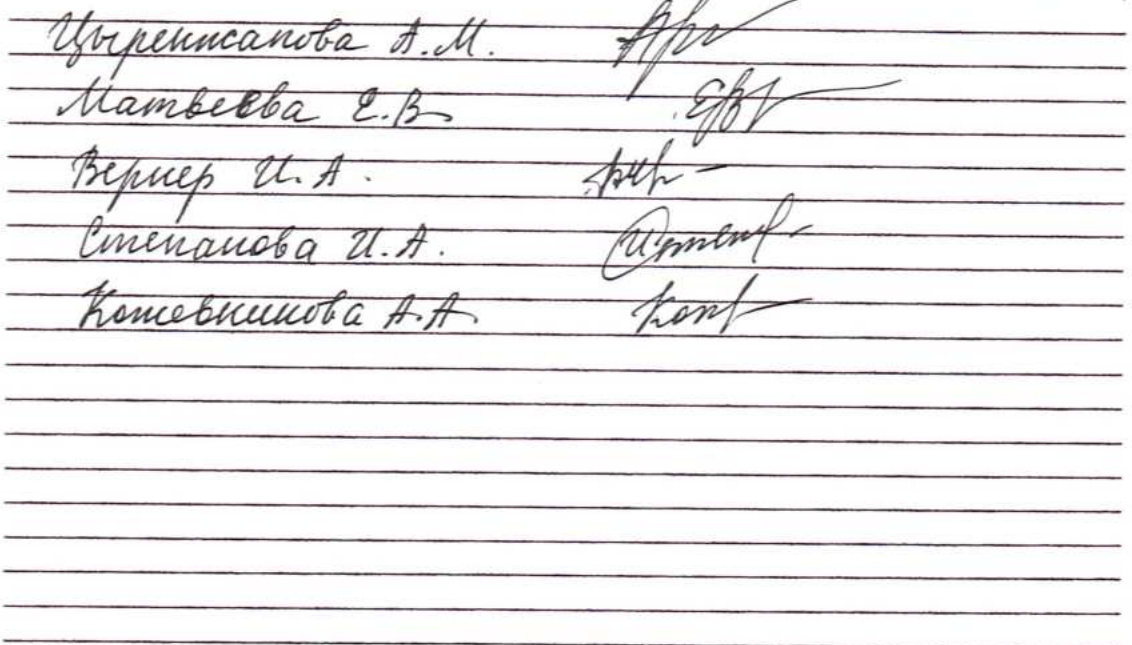 Цыренжапова А.М.
Матвеева Е.В.
Вернер И.А.
Степанова И.А.
Кожевникова А.А.